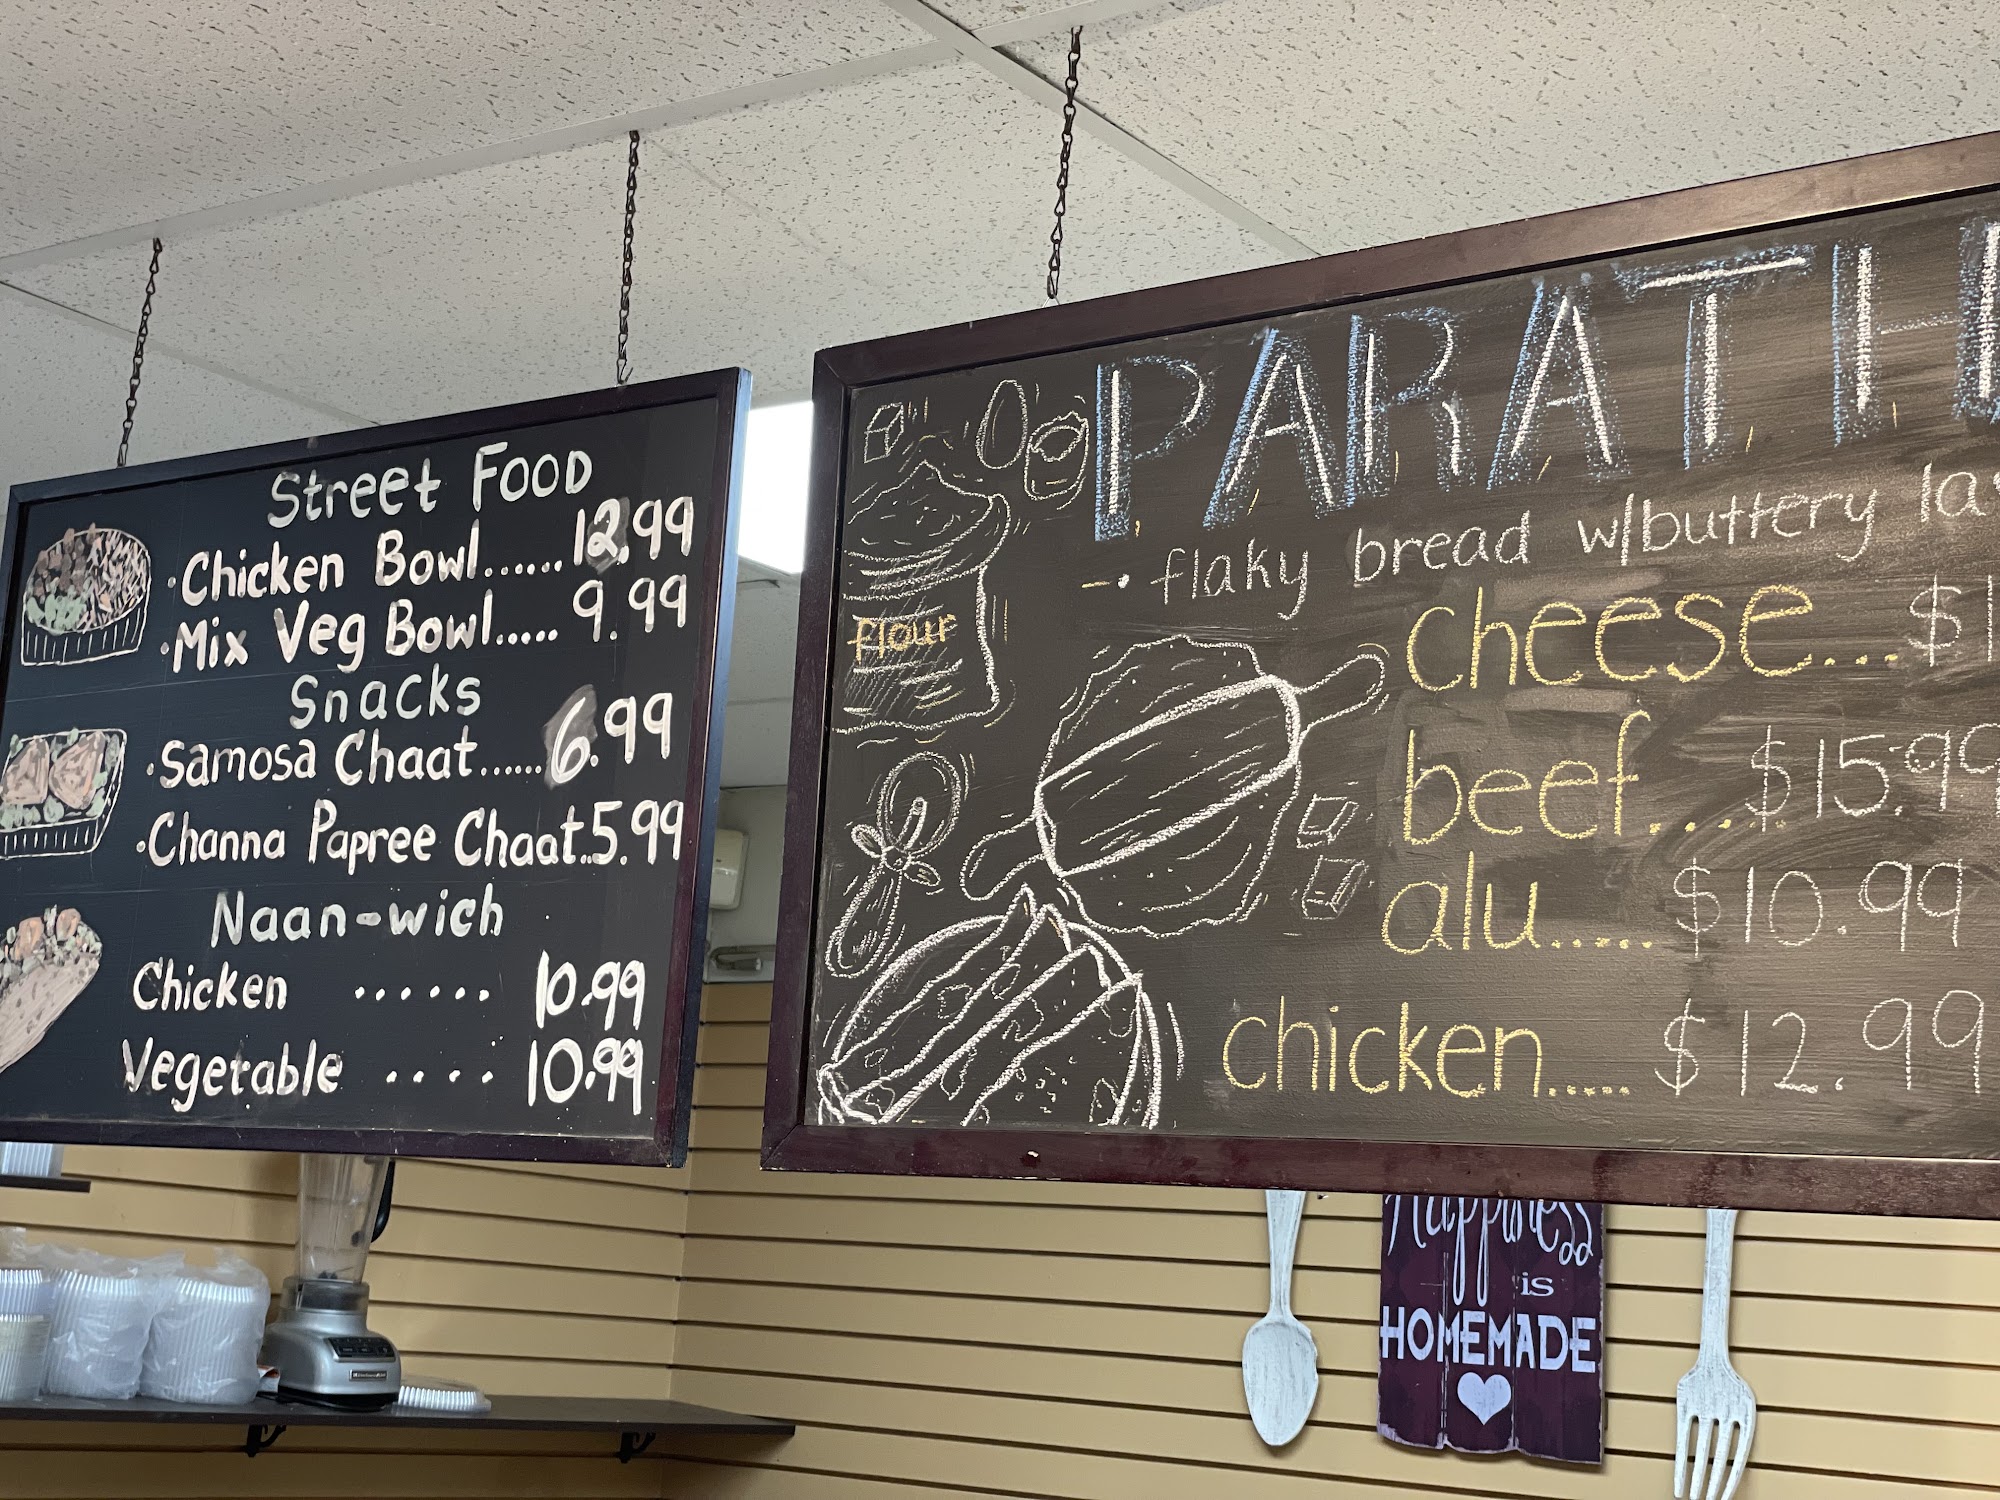 Street Food
•Chicken Bowl......12.99
•Mix Veg Bowl.....9.99
Snacks
•Samosa Chaat......6.99
•Channa Papree Chaat..5.99
Naan-wich
Chicken ...... 10.99
Vegetable .... 10.99
PARATH
-• flaky bread w/buttery la
flour
cheese...$1
beef.....$15.99
alu.....$10.99
chicken.....$12.99
Happiness
is
HOMEMADE